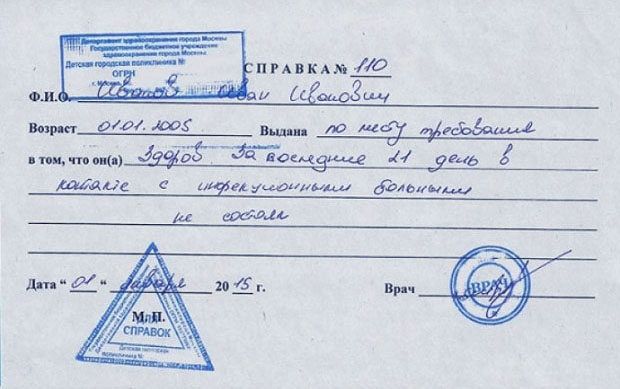 Департамент здравоохранения города Москвы
Государственное бюджетное учреждение
здравоохранения города Москвы
Детская городская поликлиника №
ОГРН
г. Москва,
СПРАВКА № 110
Ф.И.О. Иванов Иван Иванович
Возраст 01.01.2005 Выдана по месту требования
в том, что он(а) Здоров. За последние 21 день в
контакте с инфекционными больными
не состоял
Дата "01" января 2015 г. Врач
ВРАЧ
М. П.
ДЛЯ
СПРАВОК
Детская городская
поликлиника №